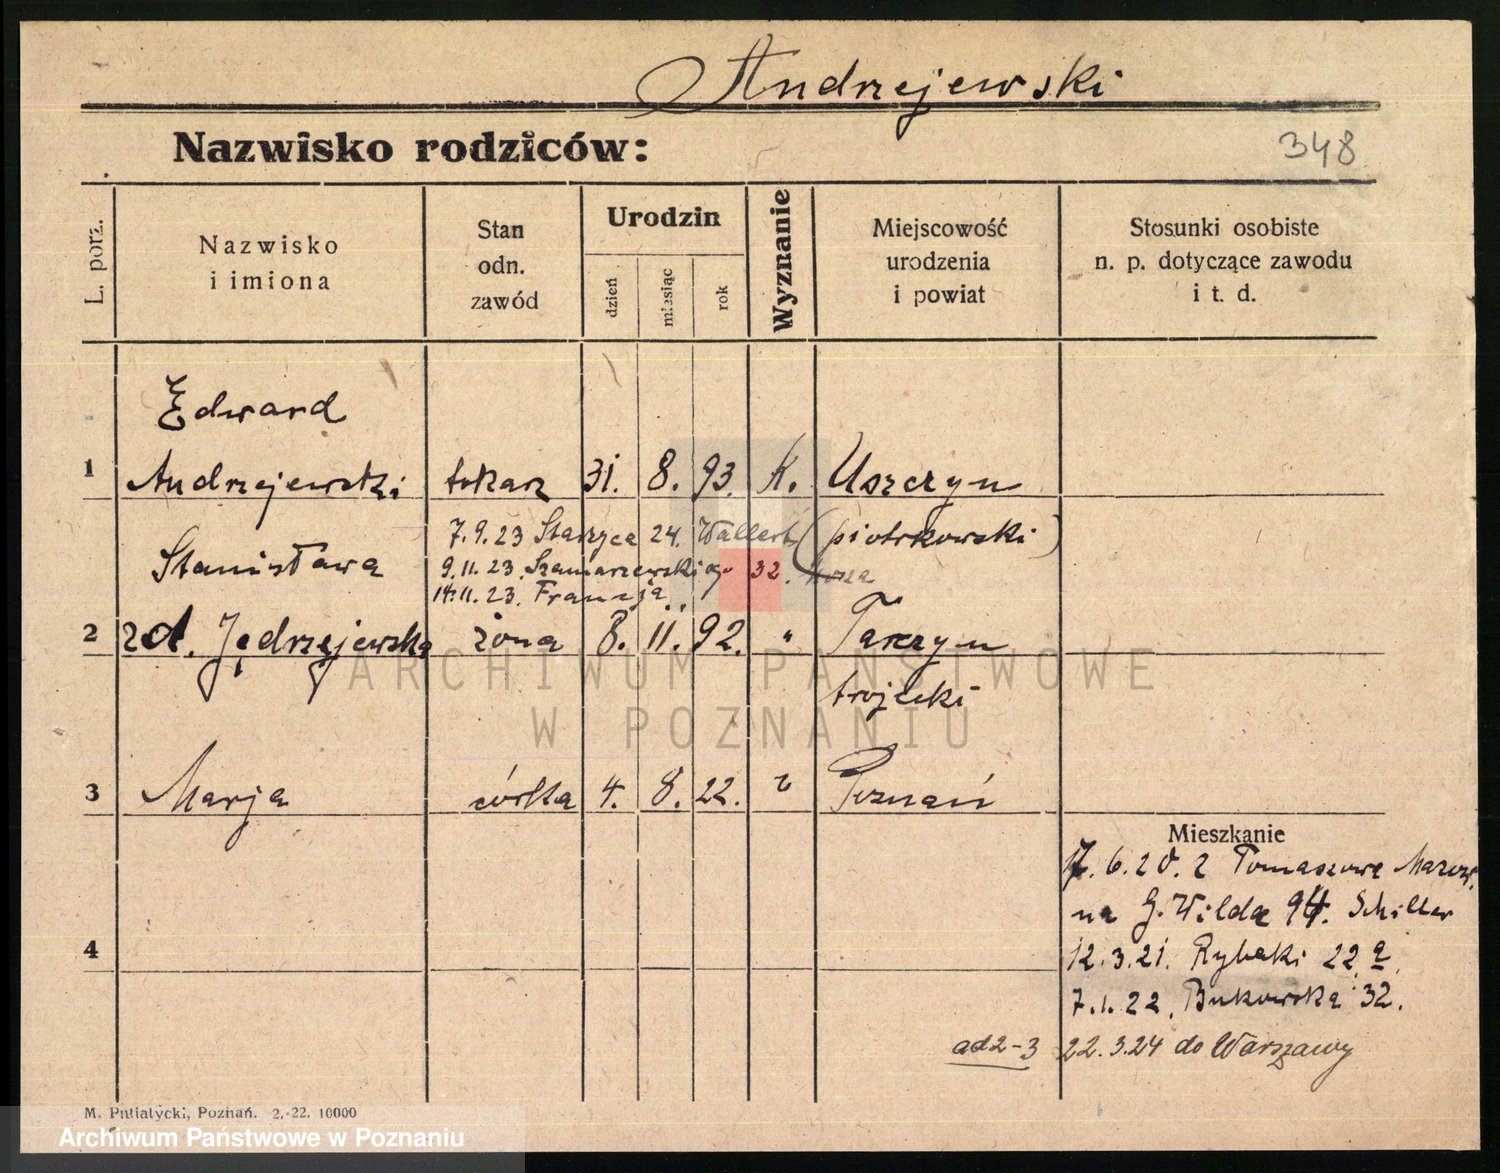 Andrzejewski
Nazwisko rodziców:
348
L. porz.
Nazwisko
i imiona
Stan
odn.
zawód
Urodzin
dzień
miesiąc
rok
Wyznanie
Miejscowość
urodzenia
i powiat
Stosunki osobiste
n. p. dotyczące zawodu
i t. d.
Edward
1 Andrzejewski tokarz 31. 8. 93. K. Uszczyn
7.9.23 24. (piotrkowski)
Stanisława
9.11.23. Szamarzewskiego 32.
14.11.23. Francja
2 zd. Jędrzejewska żona 8. 11. 92. " Tarczyn
trojecki
3 Marja córka 4. 8. 22. Poznań
Mieszkanie
17.6.20. z Tomaszowa Mazow.
na G. Wilda 94. Schiller
4
12.3.21. Rybaki 22 a
7.1.22. Bukowska 32.
ad 2-3 22.3.24 do Warszawy
M. Putiatycki, Poznań. 2.-22. 10000
ARCHIWUM PAŃSTWOWE
W POZNANIU
Archiwum Państwowe w Poznaniu